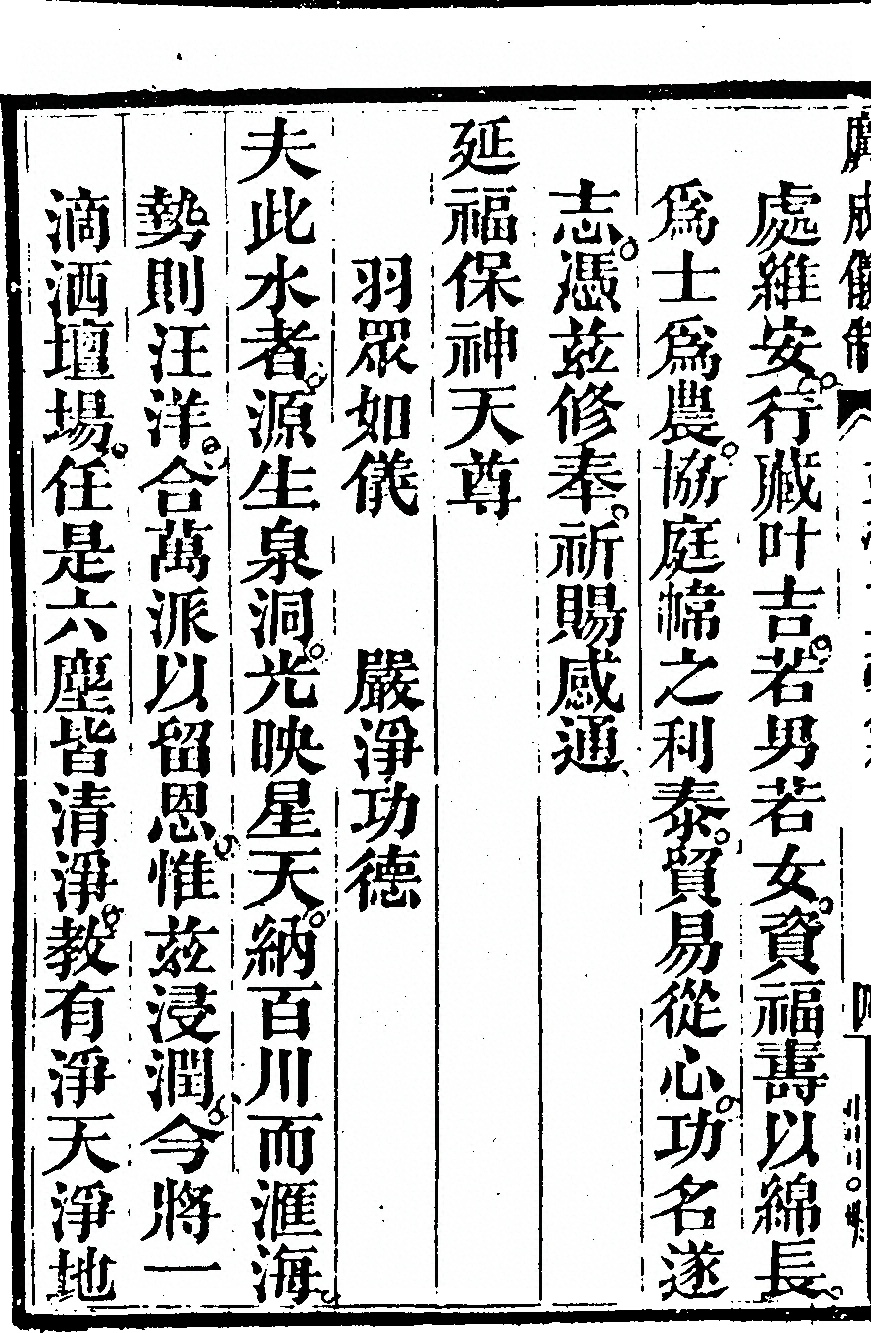 廣成儀制
處維安。行藏叶吉。若男若女。資福壽以綿長。
為士為農。協庭幃之利泰。貿易從心。功名遂
志。憑茲修奉。祈賜感通、
延福保神天尊
羽眾如儀　嚴淨功德
夫此水者。源生泉洞。光映星天。納百川而滙海。
勢則汪洋。合萬派以留恩。惟茲浸潤。今將一
滴洒壇場。任是六塵皆清淨。教有淨天淨地